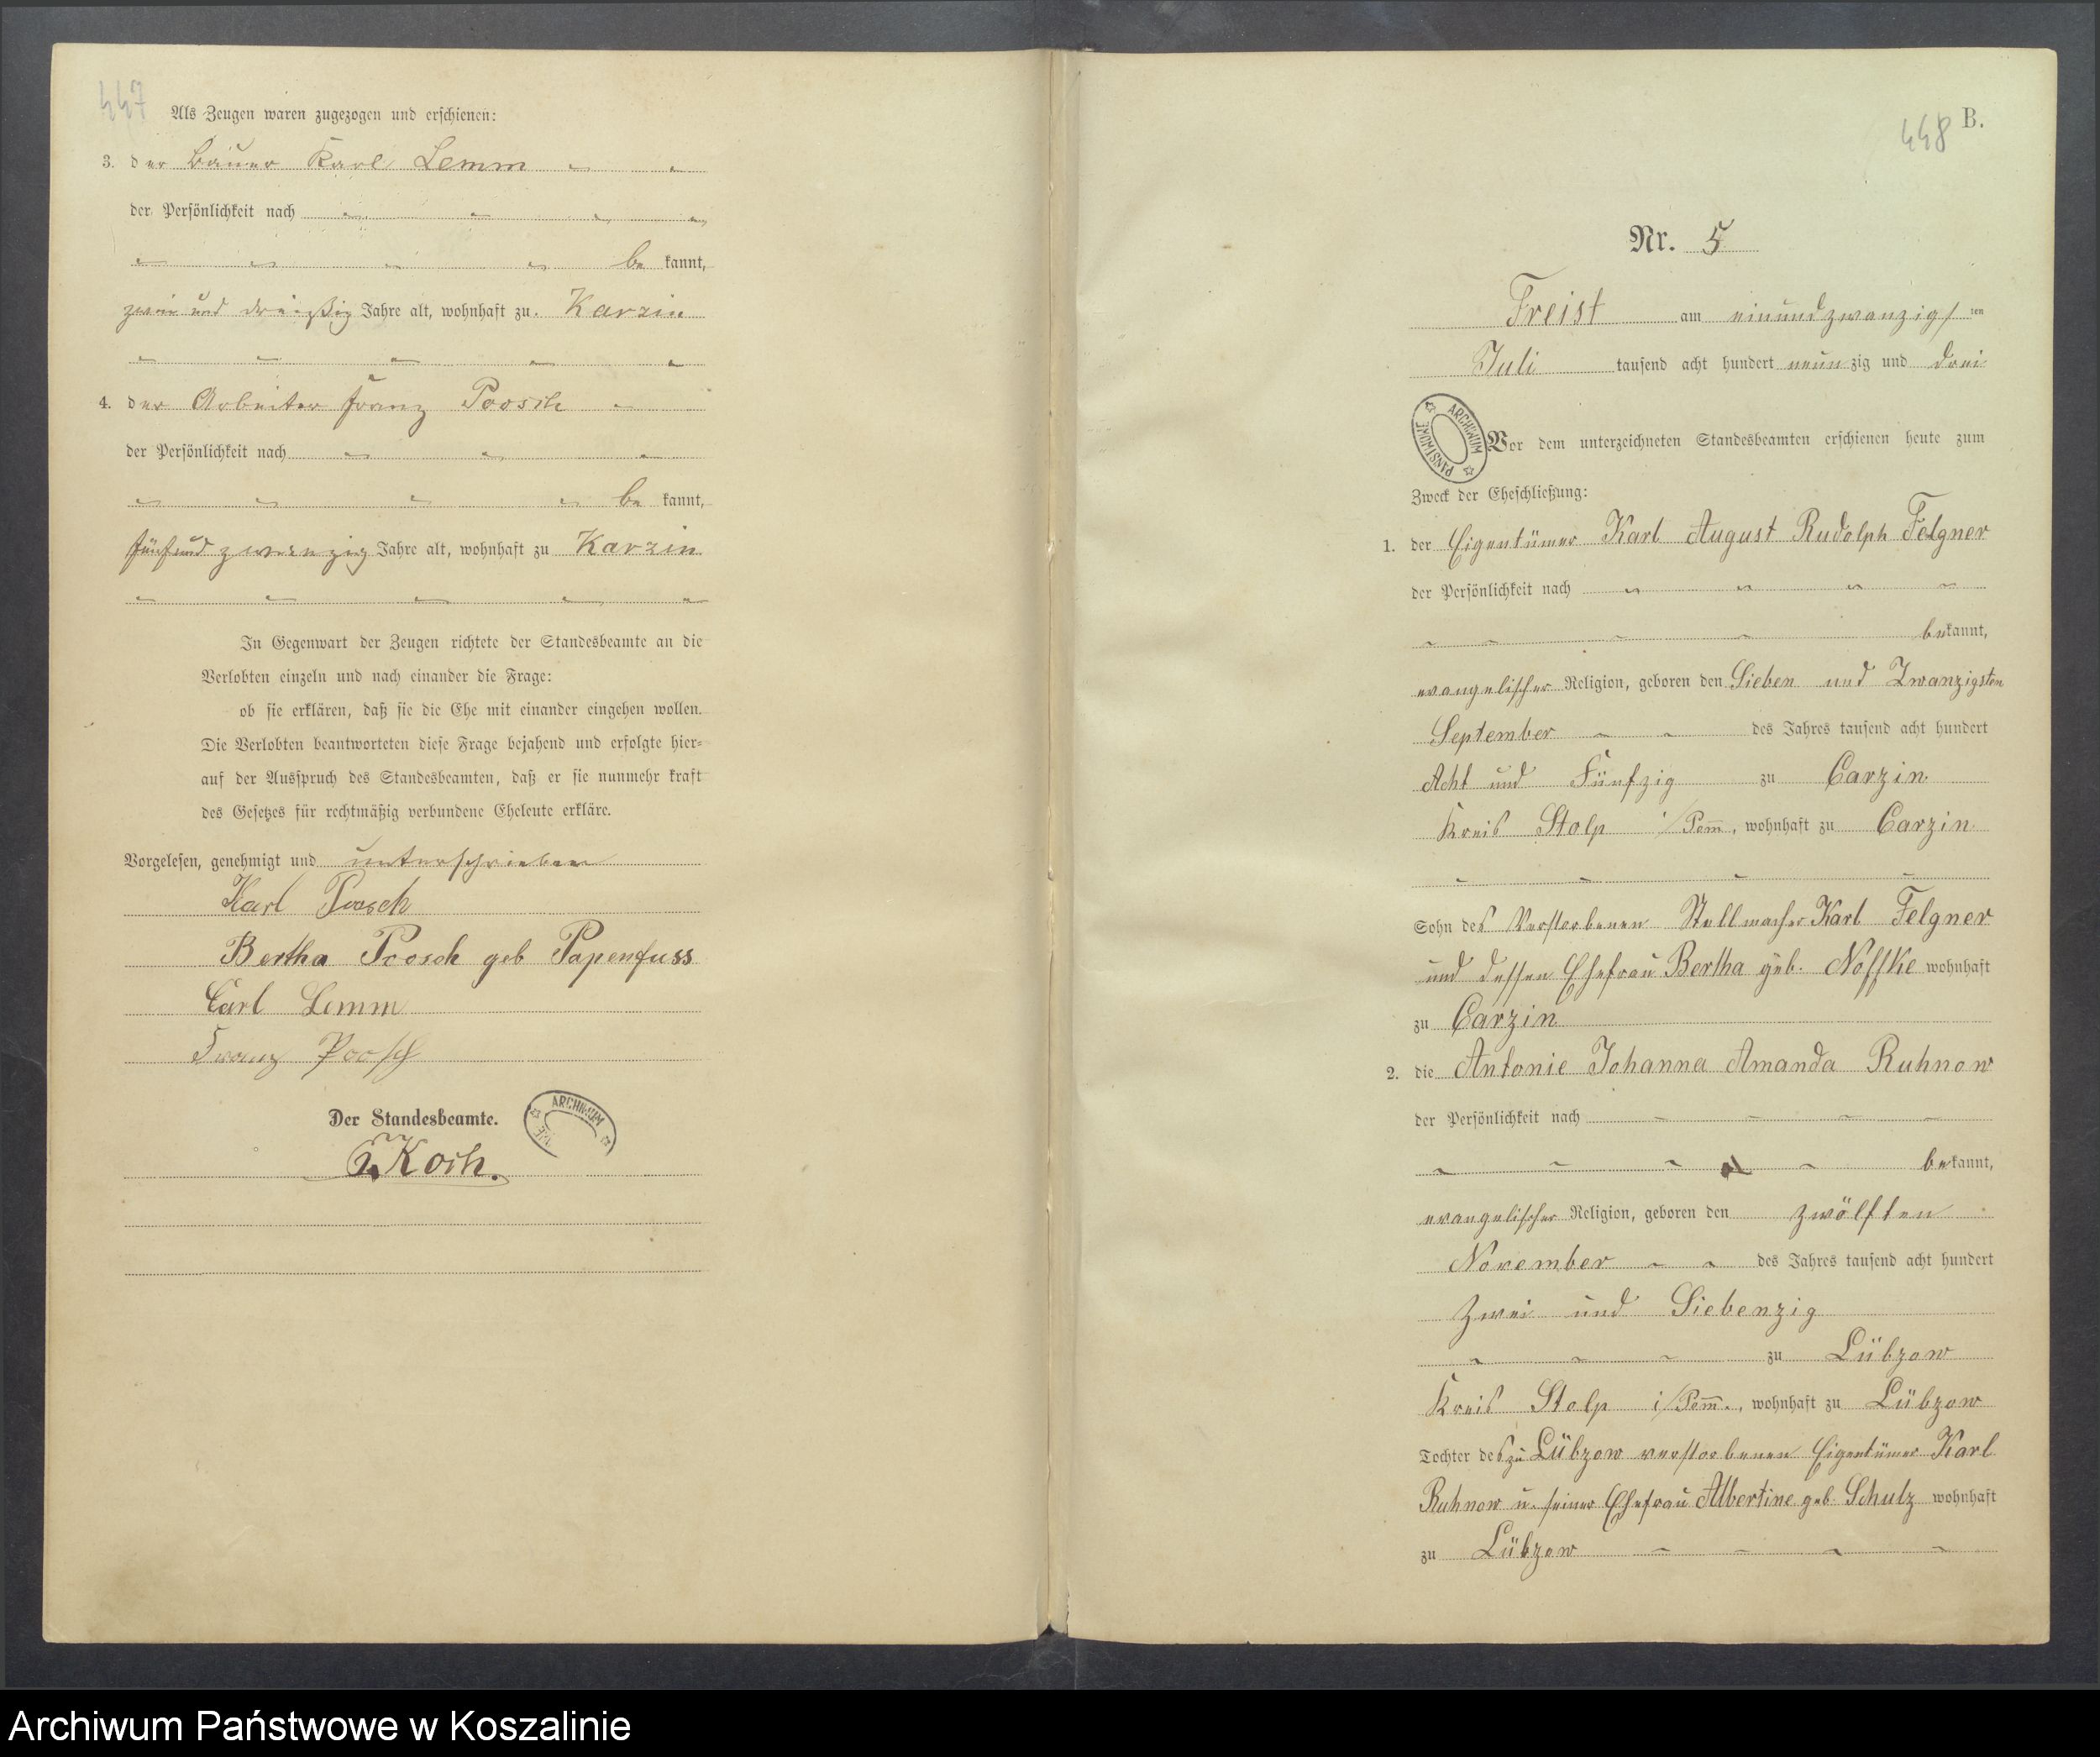 447
Als Zeugen waren zugezogen und erschienen:
3. der Bauer Karl Lemm
der Persönlichkeit nach
be kannt,
zwei und dreißig Jahre alt, wohnhaft zu Karzin
4. der Arbeiter Franz Poosch
der Persönlichkeit nach
be kannt,
fünfund zwanzig Jahre alt, wohnhaft zu Karzin
In Gegenwart der Zeugen richtete der Standesbeamte an die
Verlobten einzeln und nach einander die Frage:
ob sie erklären, daß sie die Ehe mit einander eingehen wollen.
Die Verlobten beantworteten diese Frage bejahend und erfolgte hier-
auf der Ausspruch des Standesbeamten, daß er sie nunmehr kraft
des Gesetzes für rechtmäßig verbundene Eheleute erkläre.
Vorgelesen, genehmigt und unterschrieben
Karl Poosch
Bertha Poosch geb Papenfuss
Carl Lemm
Franz Poosch
Der Standesbeamte.
Koch.
ARCHIWUM
448 B.
Nr. 5
Freist am einundzwanzigsten
Juli tausend acht hundert neunzig und drei
ARCHIWUM PAŃSTWOWE
Vor dem unterzeichneten Standesbeamten erschienen heute zum
Zweck der Eheschließung:
1. der Eigentümer Karl August Rudolph Felgner
der Persönlichkeit nach
bekannt,
evangelischer Religion, geboren den Sieben und Zwanzigsten
September des Jahres tausend acht hundert
Acht und Fünfzig zu Carzin
Kreis Stolp i/Pomm., wohnhaft zu Carzin
Sohn des Verstorbenen Stellmacher Karl Felgner
und dessen Ehefrau Bertha geb. Nöffke wohnhaft
zu Carzin
2. die Antonie Johanna Amanda Ruhnow
der Persönlichkeit nach
bekannt,
evangelischer Religion, geboren den zwölften
November des Jahres tausend acht hundert
Zwei und Siebenzig
zu Lübzow
Kreis Stolp i/Pomm., wohnhaft zu Lübzow
Tochter des zu Lübzow verstorbenen Eigentümer Karl
Ruhnow u. seiner Ehefrau Albertine geb. Schulz wohnhaft
zu Lübzow
Archiwum Państwowe w Koszalinie